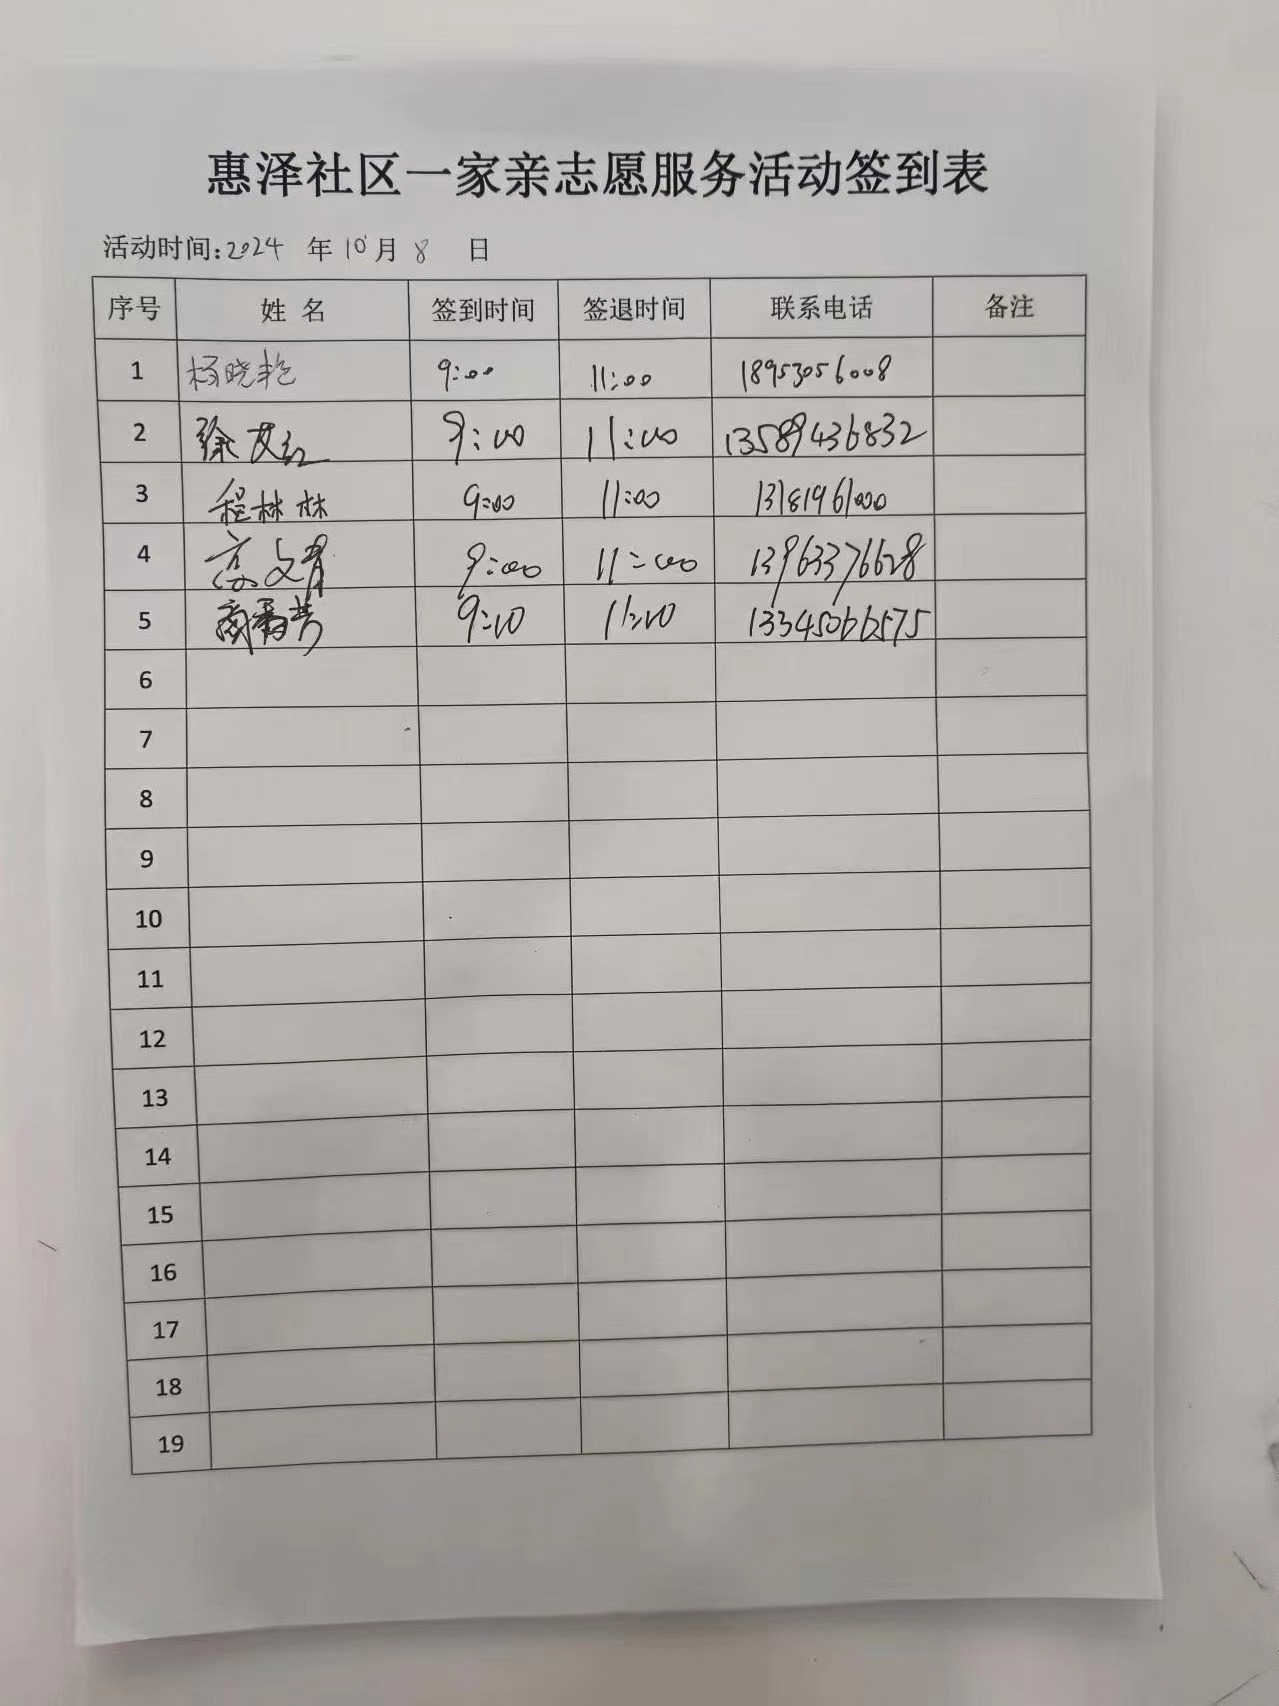 惠泽社区一家亲志愿服务活动签到表
活动时间:2024 年 10 月 8 日
序号 姓 名 签到时间 签退时间 联系电话 备注
1 杨晓艳 9:00 11:00 18953056008
2 徐艾红 9:00 11:00 13589436832
3 程林林 9:00 11:00 13181961000
4 高文青 9:00 11:00 13963376628
5 9:10 11:10 13345066575
6
7
8
9
10
11
12
13
14
15
16
17
18
19